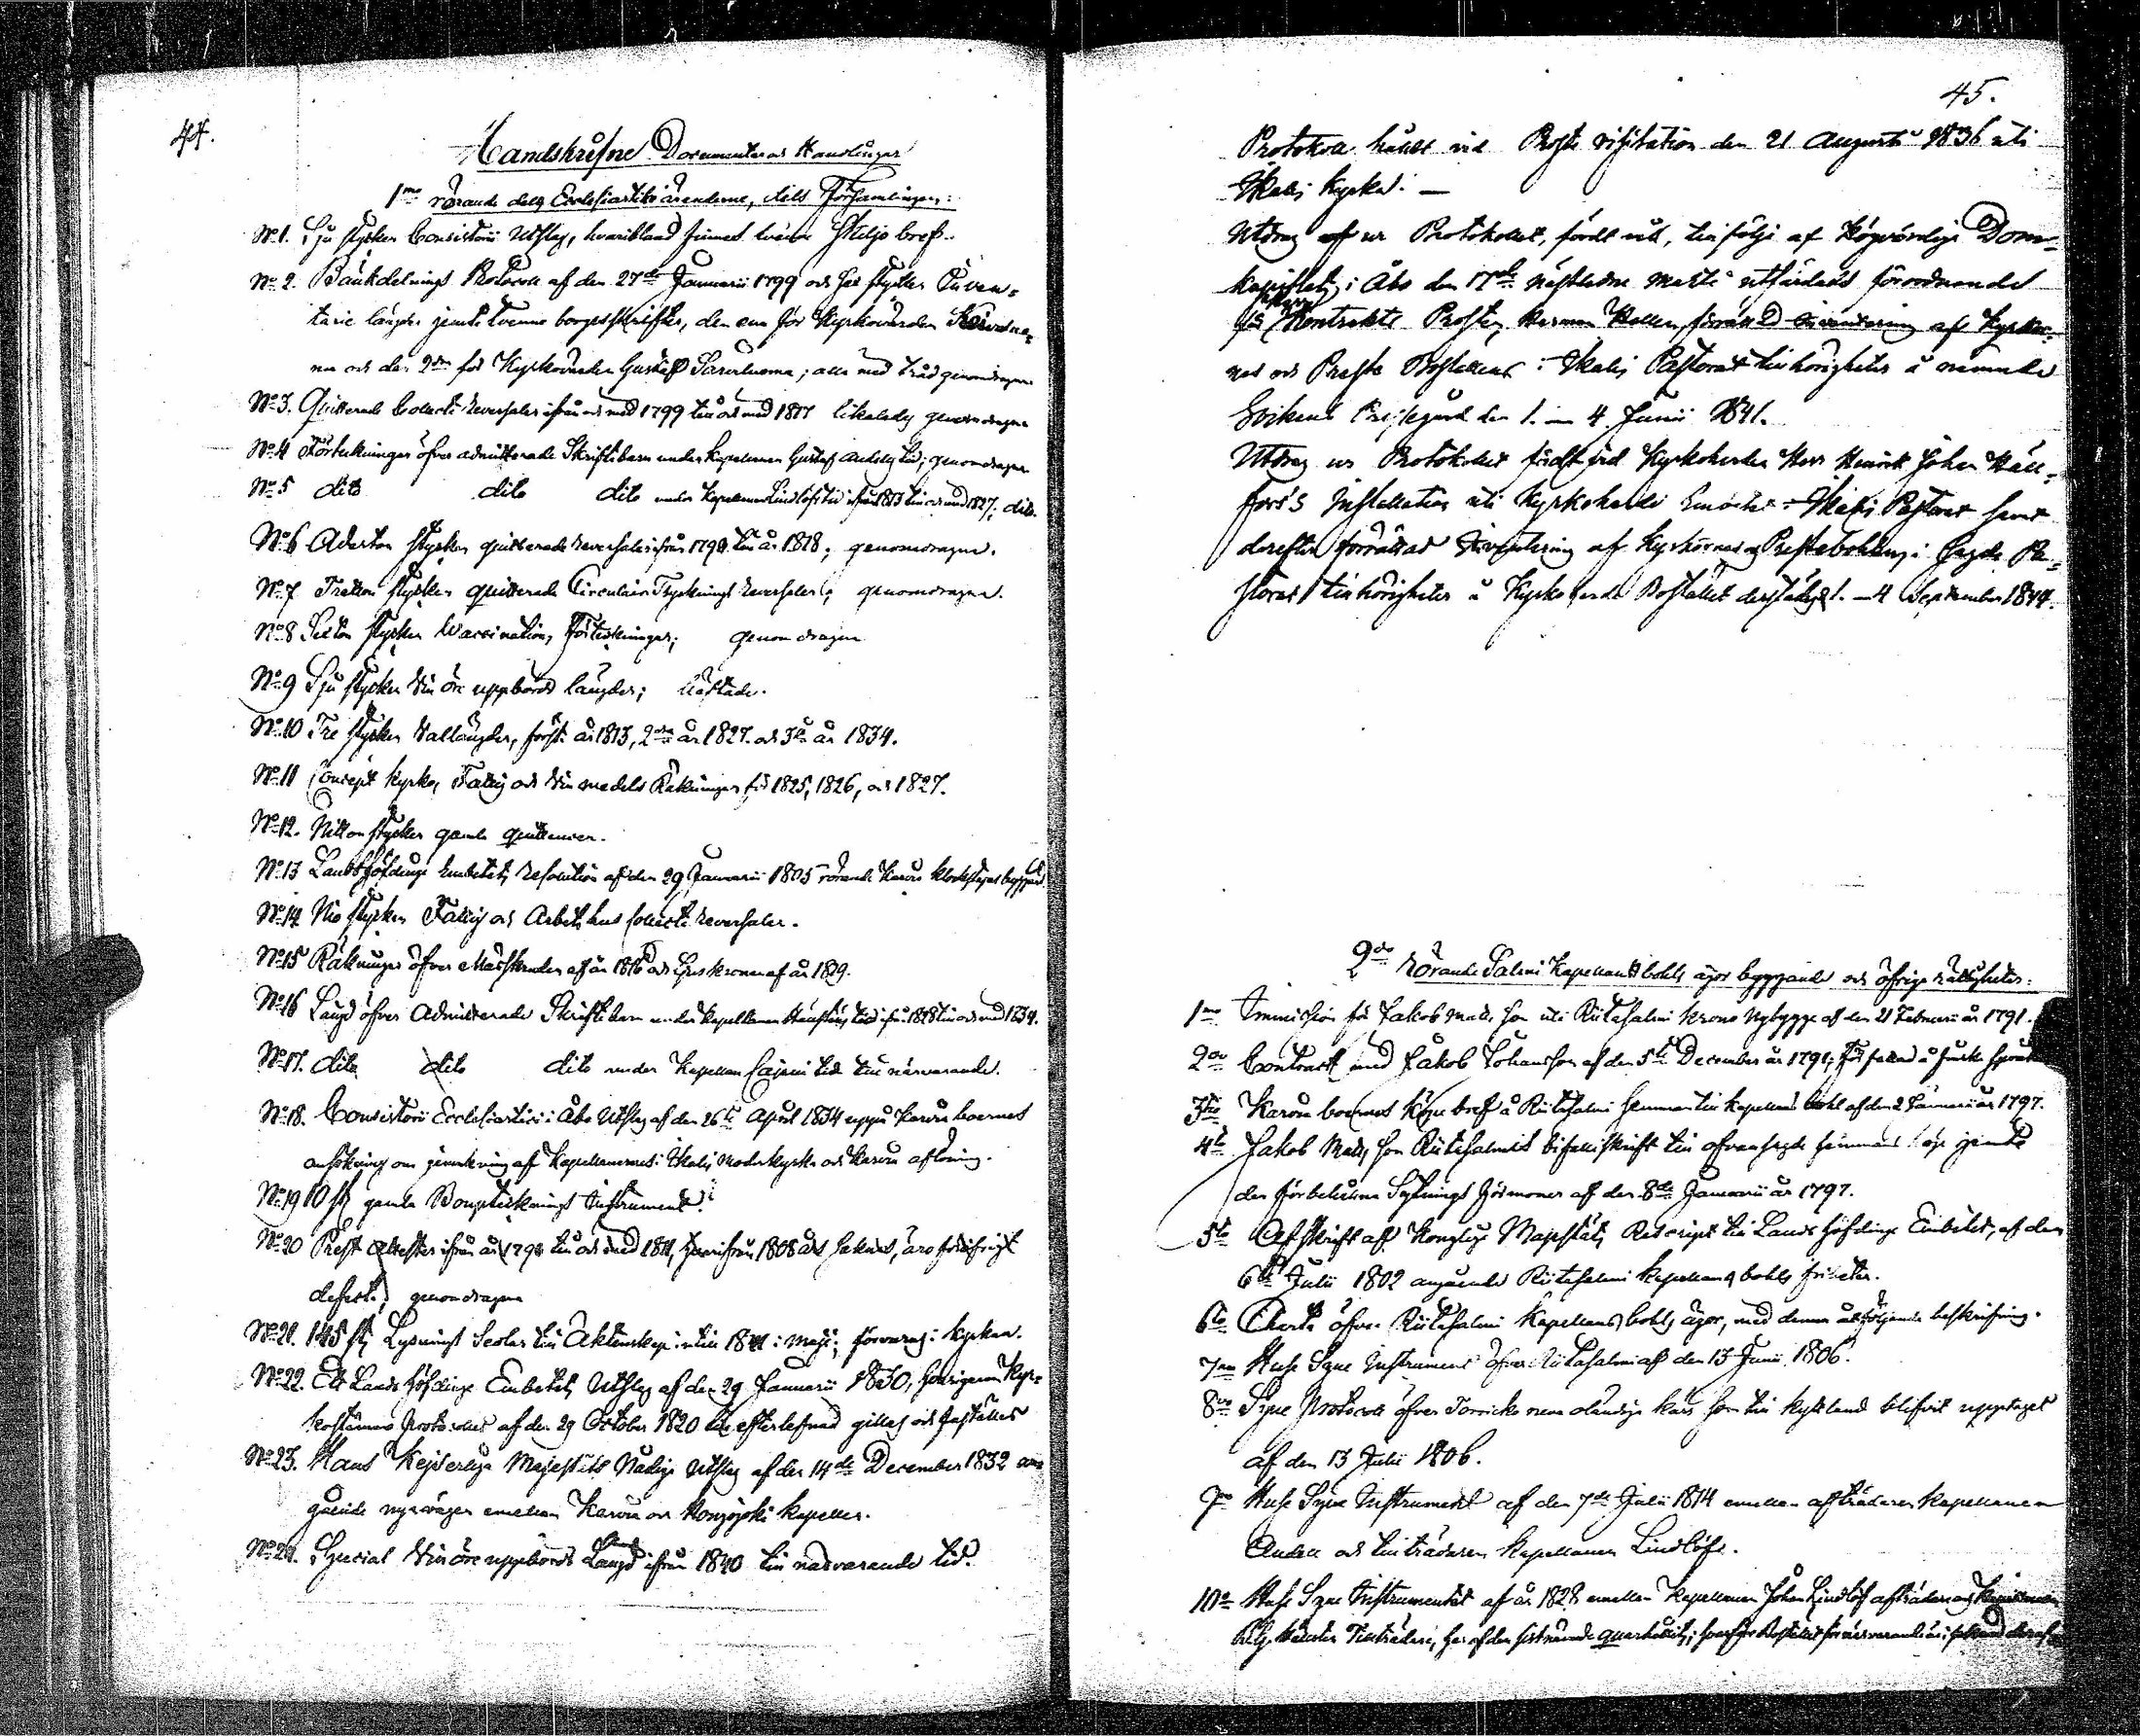 44.
Handskrifne Documenter och Handlingar
1mo rörande dels Ecclesiastike ärenderne, dels Församlingen:
No 1. Sju stycken Consistorii Utslag, hvaribland finnes tvänne Skiljo bref.
No 2. Bänkdelnings Protocoll af den 27de Januarii 1799 och sex stycken Inven-
tarie längder jemte tvenne borgesskrifter, den ena för Kyrkovärden
och den 2dra för Kyrkovärden Gustaf; alla med tråd genomdragne
No 3. Quitterade Collect Reversaler ifrån och med 1799 till och med 1817 likaledes genomdragne
No 4 Förtekningar öfver admitterade Skriftebarn under Kapellanen Gustaf Andells tid; genomdragne
No 5 dito dito dito under Kapellanen Lindlöfs tid ifrån 1813 till och med 1827; dito.
No 6 Aderton stycken quitterade Reversaler ifrån 1794 till år 1818; genomdragne.
No 7 Tretton stycken quitterade Circulair Trycknings Reversaler; genomdragne.
No 8 Sexton stycken Vaccinations Förteckningar; genomdragne
No 9 Sju stycken Vin öre uppbörds längder; häftade.
No 10 Tre stycken Vallängder, första år 1813, 2dra år 1827. och 3de år 1834.
No 11 Concept Kyrko, Fattig och Vin medels Räkningar för 1825, 1826, och 1827.
No 12. Nitton stycken gamla quittencer.
No 13 Landshöfdinge Embetets Resolution af den 29 Januarii 1805 rörande Karvia Klockstapels byggnad
No 14 Nio stycken Fattig och Arbetshus Collect Reversaler.
No 15 Räkningar öfver Mässkruden af år 1816 och Ljuskronan af år 1819.
No 16 Längd öfver Admitterade Skriftebarn under Kapellanen tid ifrån 1828 till och med 1834.
No 17. dito dito dito under Kapellan Cajani tid till närvarande.
No 18. Consistorii Ecclesiastici i Åbo Utslag af den 26te April 1834 uppå Karvia boernes
ansökning om jemkning af Kapellanernes i Ikalis Moderkyrka och Karvia aflöning.
No 19 10 st gamla Boupteknings Instrument.
No 20 Prest attester ifrån år 1794 till och med 1811, hvarifrån 1808 års saknas, äro för öfrigt
defect; genomdragne
No 21. 145 st Lysnings Sedlar till Äktenskap intill 1841 i Maji; förvaras i Kyrkan.
No 22. Ett Landshöfdinge Embetets Utslag af den 29 Januarii 1830, hvarigenom Kyr-
kostämmo Protocollet af den 29 October 1820 till efterlefnad gillas och faställes
No 23. Hans Kejserliga Majestäts Nådiga Utslag af den 14de December 1832 an-
gående nya vägen emellan Karvia och Honojoki Kapeller.
No 24. Special Vin öre uppbörds Längd ifrån 1840 till närvarande tid.
45.
Protokoll hållet vid Proste visitation den 21 Augusti 1836 uti
Ikalis Kyrka. —
Utdrag ur Protokollet, fördt vid, till följe af Högvördige Dom-
kapitlets i Åbo den 17de nästledne Martii utfärdade förordnande
för Kontrakts Prosten Herman Hellen, förrättad Inventering af Kyrkor-
nes och Preste Boställens i Ikalis Pastorat tillhörigheter å nämnde
Sockens Prestgård den 1. — 4 Junii 1841.
Utdrag ur Protokollet fördt vid Kyrkoherden Herr Henrik Johan Häll-
fors's Installation uti Kyrkoherde Embetet i Ikalis Pastorat samt
derefter förrättad Inventering af Kyrkornes och Prestebolens i sagde Pa-
storat tillhörigheter å Kyrkoherde Bostället derstädes 1. — 4 September 1844.
2do Rörande Salmi Kapellans bohls ägor byggnader och öfriga rättigheter:
1mo Immission för Jakob Mats son uti Riitasalmi Krono Nybygge af den 21 Februarii år 1791.
2do Contract med Jakob Johansson af den 5te December år 1791; författad å finska språket
3tio Karvia boernes Köpebref å Riitasalmi hemman till Kapellans bohl af den 2 Januarii år 1797.
4to Jakob Mats son Riitasalmis bifalls skrift till ofvansagde hemmans köp jemte
den förbehållna Sytnings förmoner af den 8de Januarii år 1797.
5to Afskrift af Kongliga Majestäts Rescript till Landshöfdinge Embetet, af den
6te Julii 1802 angående Riitasalmi Kapellans bohls friheter.
6to Charta öfver Riitasalmi Kapellans bohls ägor, med denna åtföljande beskrifning.
7mo Huse Syne Instrument öfver Riitasalmi af den 13 Junii 1806.
8vo Syne Protocoll öfver Torrickonewa oländiga kärr som till Kyttland blifvit upptaget
af den 13 Julii 1806.
9no Huse Syne Instrument af den 7de Julii 1814 emellan afträdaren Kapellanen
Andell och tillträdaren Kapellanen Lindlöf.
10mo Huse Syne Instrumentet af år 1828 emellan Kapellanen Johan Lindlöf afträdare och
Tillträdare, har af den sistnämnde quarhållits;